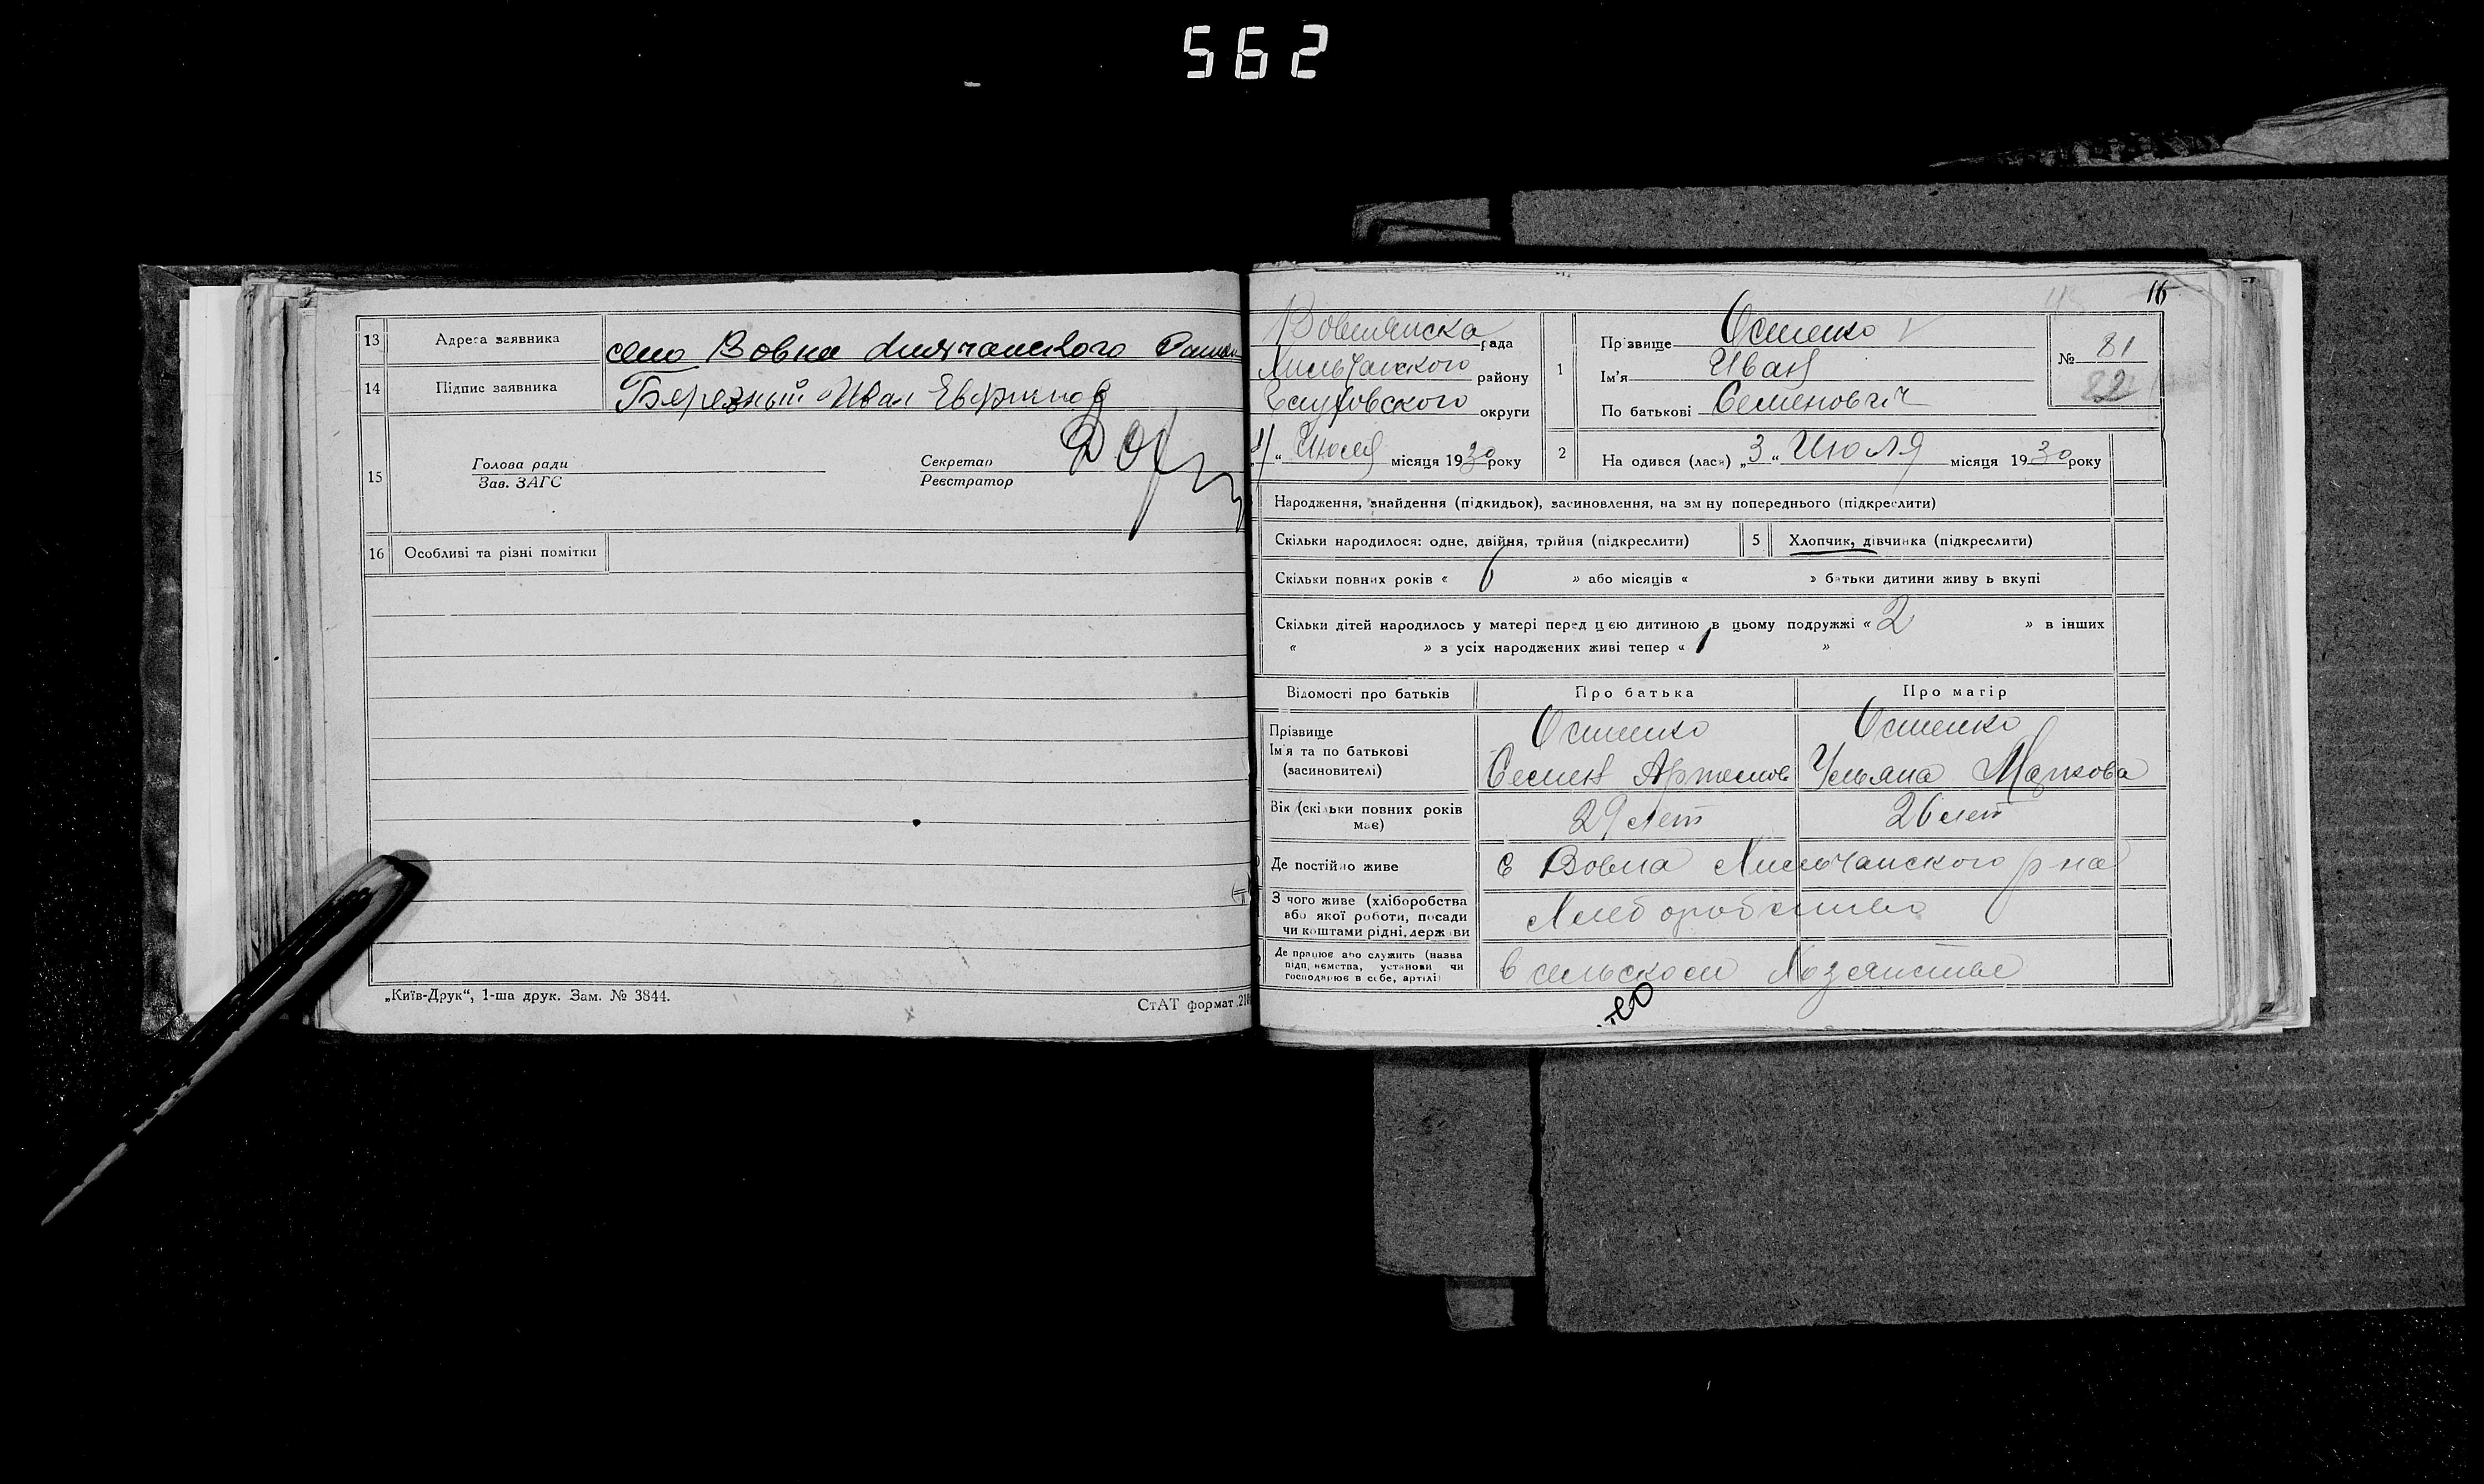 562
13 Адреса заявника село Вовна
14 Підпис заявника Бережный Иван
15 Голова ради
Зав. ЗАГС
Секретар
Реєстратор
16 Особливі та різні помітки
„Київ-Друк“, 1-ша друк. Зам. № 3844.
СтАТ формат
16
рада
району
округи
„ Июля місяця 1930 року
1 Прізвище Остенко
Ім'я Иван
По батькові Семенович
№ 81
82
2 Народився (лася) „3“ Июля місяця 1930 року
Народження, знайдення (підкидьок), засиновлення, на зміну попереднього (підкреслити)
Скільки народилося: одне, двійня, трійня (підкреслити)
5 Хлопчик, дівчинка (підкреслити)
Скільки повних років « 6 » або місяців « » батьки дитини живуть вкупі
Скільки дітей народилось у матері перед цією дитиною в цьому подружжі « 2 » в інших
« » з усіх народжених живі тепер « 1 »
Відомості про батьків Про батька Про матір
Прізвище Остенко Остенко
Ім'я та по батькові Семен Артемов Ульяна Маркова
(засиновителі)
Вік (скільки повних років має) 29 лет 26 лет
Де постійно живе с Вовна р на
З чого живе (хліборобства
або якої роботи, посади
чи коштами рідні, держави
Де працює або служить (назва
підприємства, установи чи
господарює в себе, артілі)
в сельском хозяистве